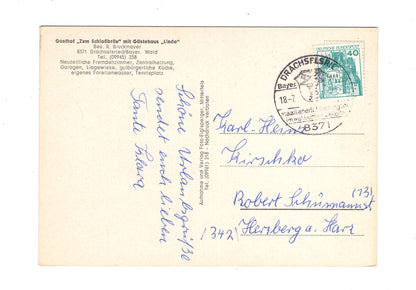 Gasthof „Zum Schloßbräu“ mit Gästehaus „Linde“
Bes. R. Bruckmayer
8371 Drachselsried/Bayer. Wald
Tel. (09945) 258
Neuzeitliche Fremdenzimmer, Zentralheizung,
Garagen, Liegewiese, gutbürgerliche Küche,
eigenes Forellenwasser, Tennisplatz
Schöne Urlaubsgrüße
sendet euch lieben
Tante Klara
Aufnahme und Verlag Foto-Eiglsperger, Mitterfels
Tel. (09961) 258 - Nachdruck verboten
DEUTSCHE BUNDESPOST
40
DRACHSELSRIED
Bayer
18-7
8371
Karl-Heinz
Kirschko
Robert Schumannst (13)
(342) Herzberg a. Harz